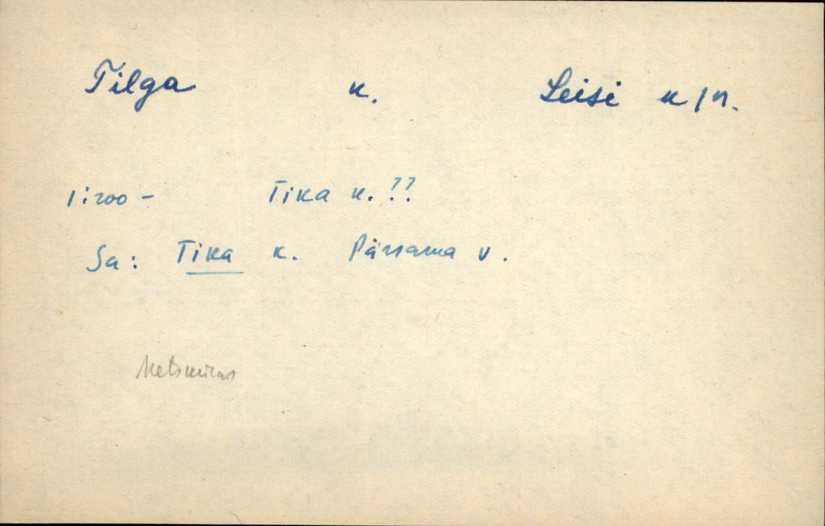 Tilga k. Leisi k/n.
1:200 - Tika k.??
Sa: Tika k. Pärsama v.